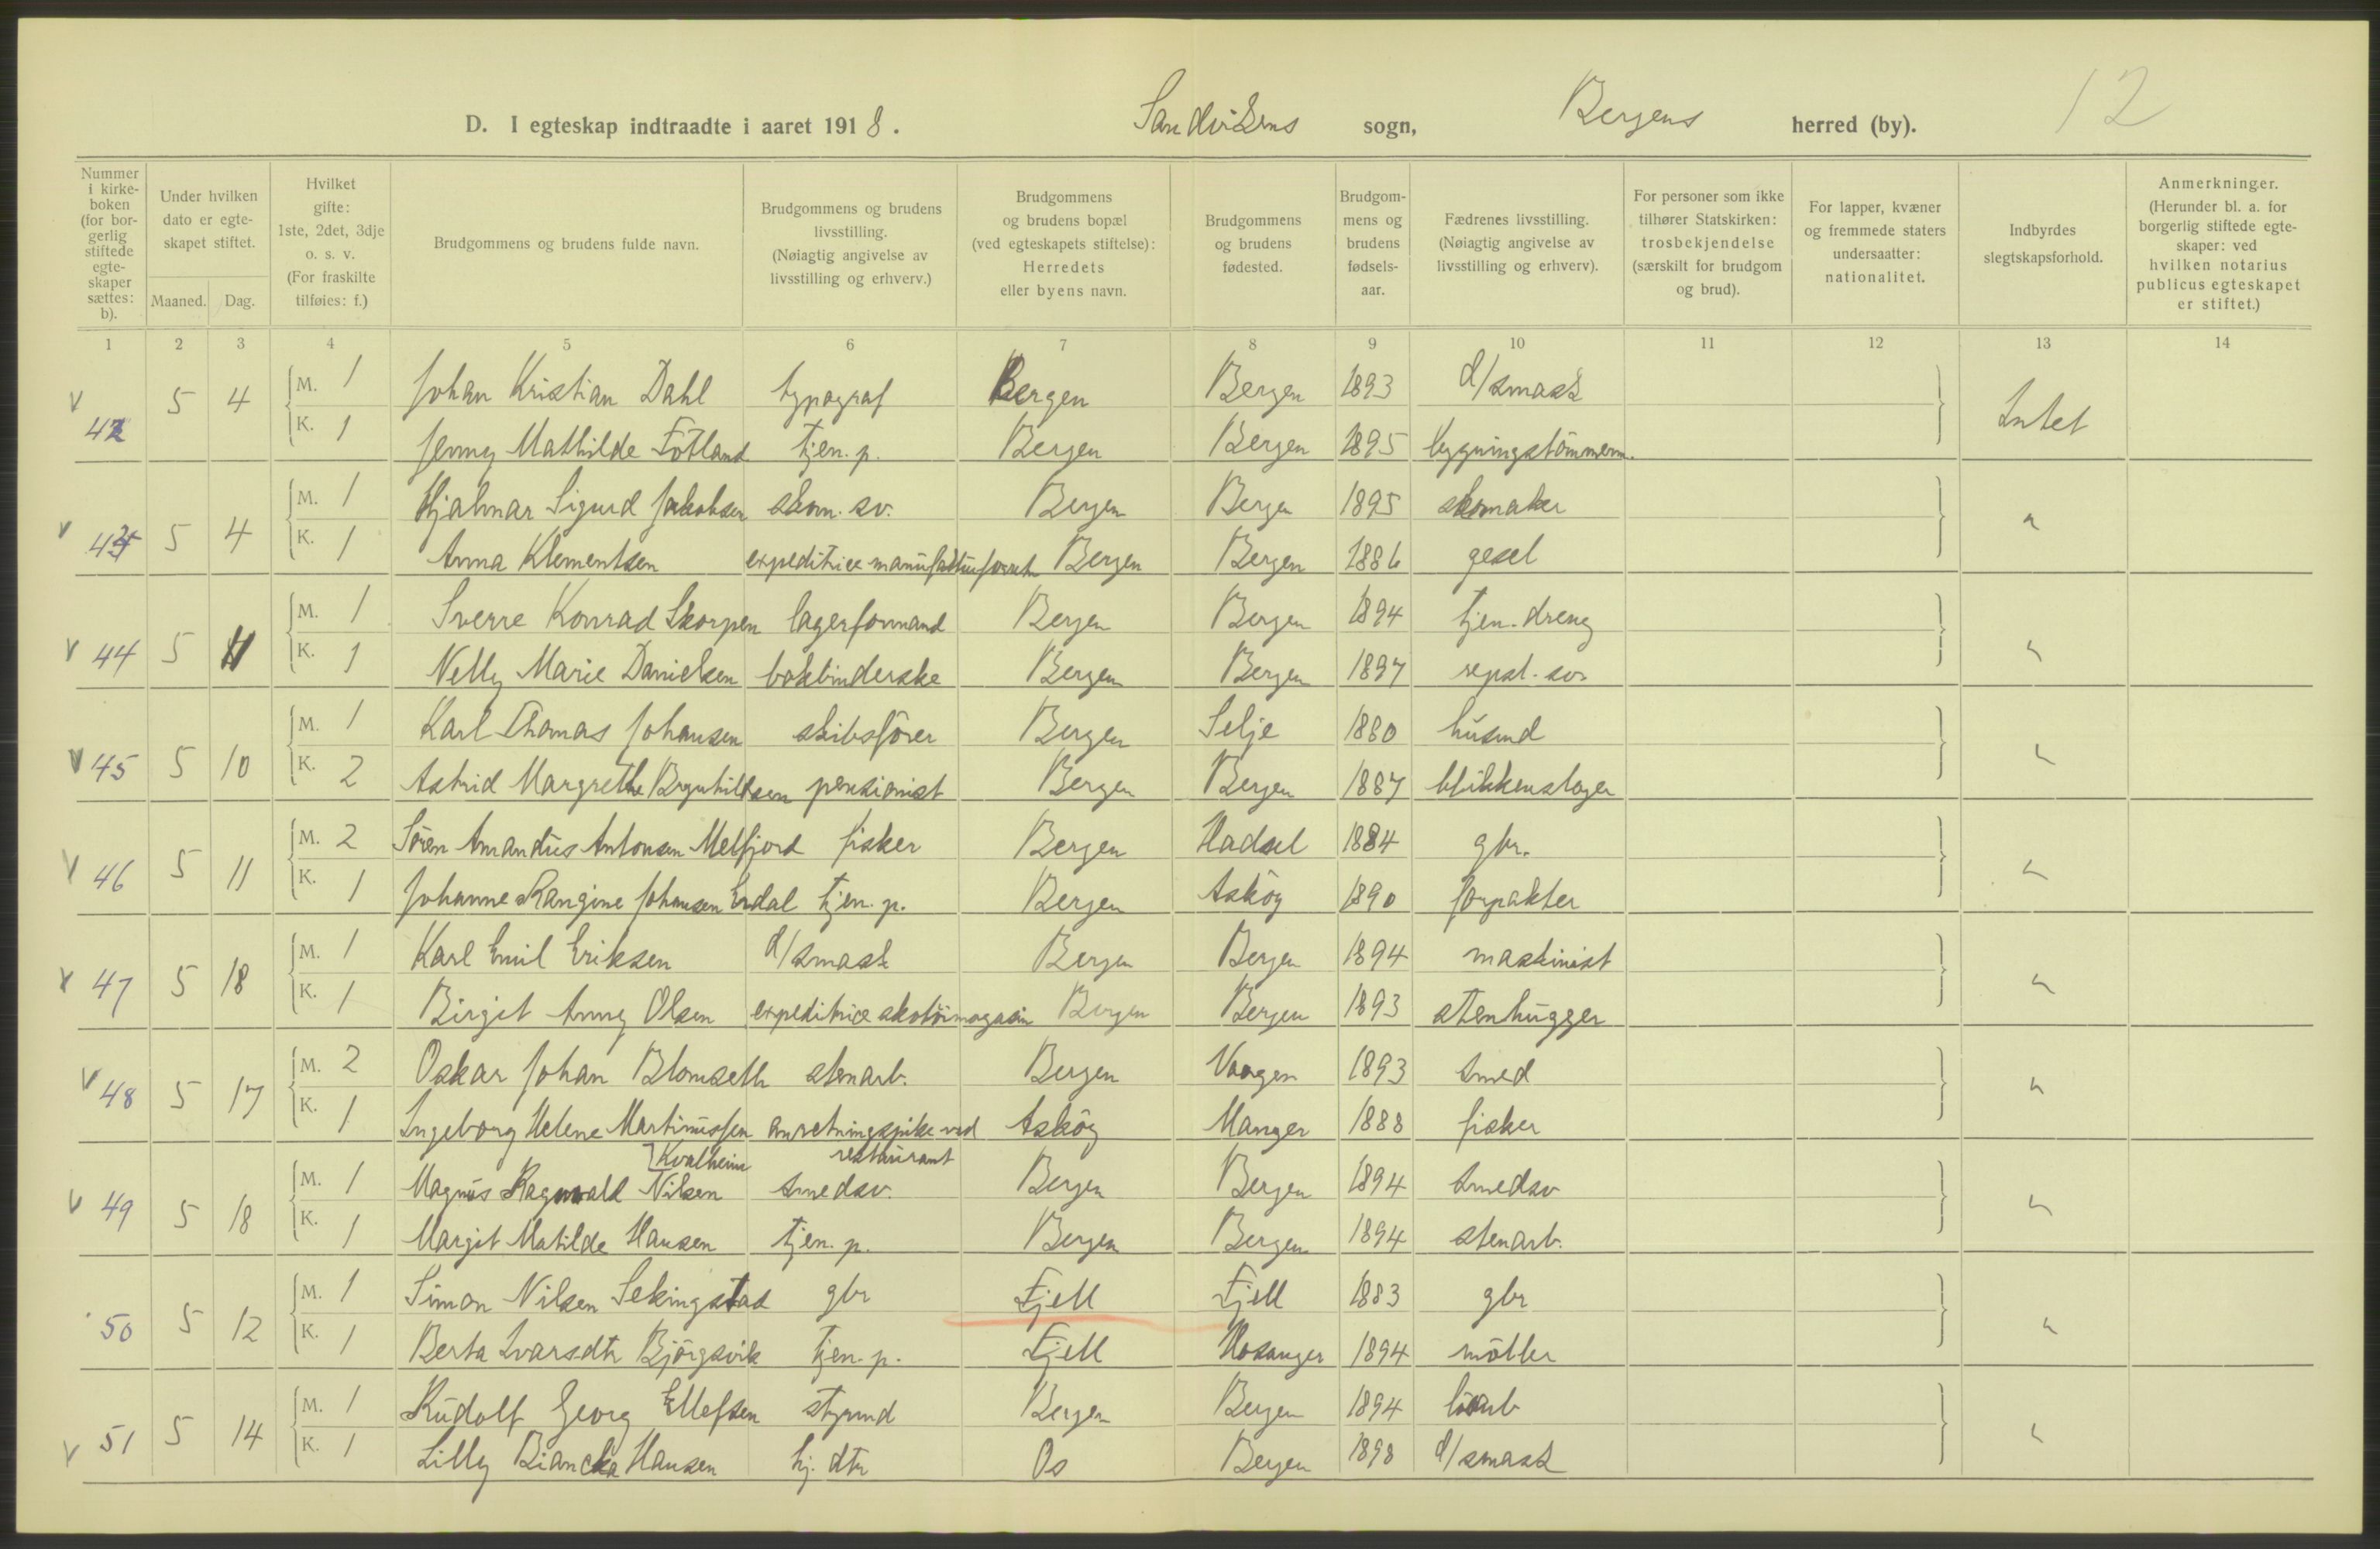 D. I egteskap indtraadte i aaret 1918. Sandvikens sogn, Bergens herred (by). 12
Nummer i kirke-boken (for bor-gerlig stiftede egte-skaper sættes: b).
Under hvilken dato er egte-skapet stiftet.
Maaned. Dag.
Hvilket gifte: 1ste, 2det, 3dje o. s. v. (For fraskilte tilføies: f.)
Brudgommens og brudens fulde navn.
Brudgommens og brudens livsstilling. (Nøiagtig angivelse av livsstilling og erhverv.)
Brudgommens og brudens bopæl (ved egteskapets stiftelse): Herredets eller byens navn.
Brudgommens og brudens fødested.
Brudgom-mens og brudens fødsels-aar.
Fædrenes livsstilling. (Nøiagtig angivelse av livsstilling og erhverv).
For personer som ikke tilhører Statskirken: trosbekjendelse (særskilt for brudgom og brud).
For lapper, kvæner og fremmede staters undersaatter: nationalitet.
Indbyrdes slegtskapsforhold.
Anmerkninger. (Herunder bl. a. for borgerlig stiftede egte-skaper: ved hvilken notarius publicus egteskapet er stiftet.)
1 2 3 4 5 6 7 8 9 10 11 12 13 14
V 42 5 4 M. 1 Johan Kristian Dahl typograf Bergen Bergen 1893 d/smask Intet
K. 1 Jenny Mathilde Fotland tjen. p. Bergen Bergen 1895 bygningstömmerm.
V 43 5 4 M. 1 Hjalmar Sigurd Jakobsen skom. sv. Bergen Bergen 1895 skomaker "
K. 1 Anna Klementsen expeditrice manufakturforretn Bergen Bergen 1886 gesel
V 44 5 M. 1 Sverre Konrad Skorpen lagerformand Bergen Bergen 1894 tjen. dreng "
K. 1 Nelly Marie Danielsen bokbinderske Bergen Bergen 1897 repsl. sv.
V 45 5 10 M. 1 Karl Thomas Johansen skibsförer Bergen Selje 1880 husmd "
K. 2 Astrid Margrethe Brynhildsen pensionist Bergen Bergen 1887 blikkenslager
V 46 5 11 M. 2 Sören Amandus Antonsen Melfjord fisker Bergen Hadsel 1884 gbr. "
K. 1 Johanne Rangine Johansen Erdal tjen. p. Bergen Asköy 1890 forpakter
V 47 5 18 M. 1 Karl Emil Eriksen d/smask Bergen Bergen 1894 maskinist "
K. 1 Birgit Anny Olsen expeditrice skotöimagasin Bergen Bergen 1893 stenhugger
V 48 5 17 M. 2 Oskar Johan Blomseth stenarb. Bergen Vaagen 1893 smed "
K. 1 Ingeborg Helene Martinussen anretningspike ved Asköy Manger 1888 fisker
Kvalheim restaurant
V 49 5 18 M. 1 Magnus Ragnvald Nilsen smedsv. Bergen Bergen 1894 smedsv "
K. 1 Margit Matilde Hansen tjen. p. Bergen Bergen 1894 stenarb.
50 5 12 M. 1 Simon Nilsen Sekingstad gbr Fjell Fjell 1883 gbr "
K. 1 Berta Ivarsdtr Björgsvik tjen. p. Fjell Hosanger 1894 möller
V 51 5 14 M. 1 Rudolf Georg Ellefsen styrmd Bergen Bergen 1894 "
K. 1 Lilly Biancka Hansen hj. dtr Os Bergen 1898 d/smask